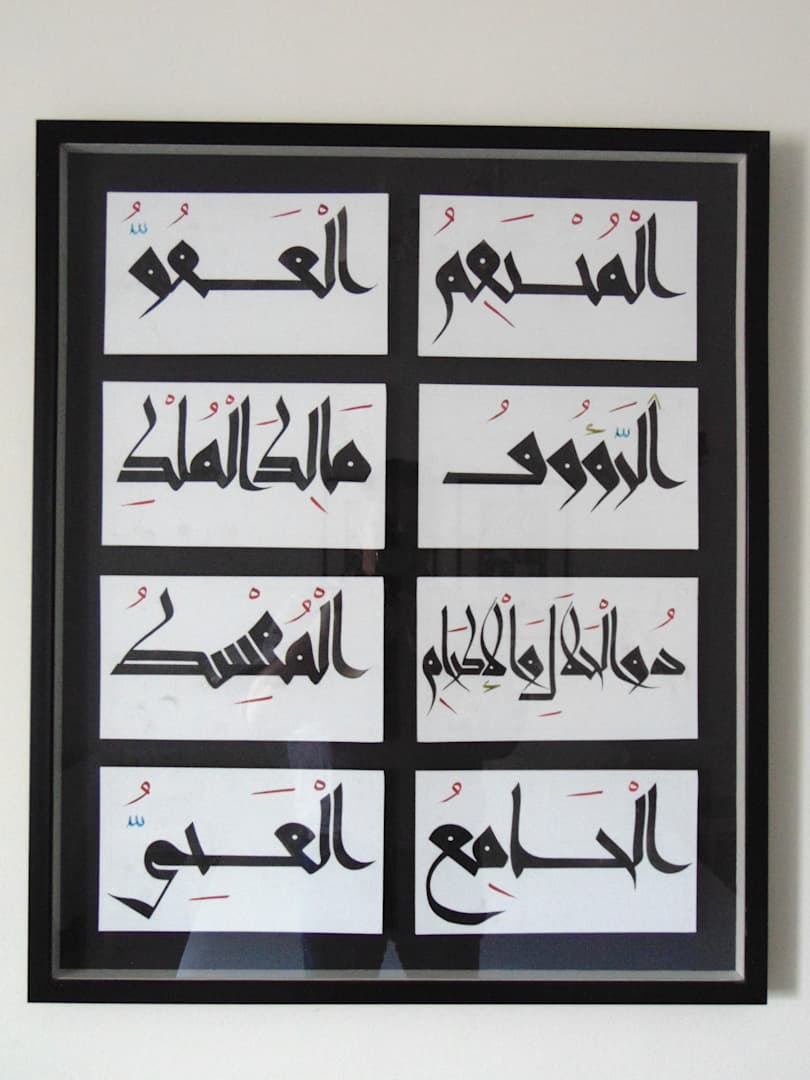 الْمُنْعِمُ
الْعَفُوُّ
الرَّؤُوفُ
مَالِكَ الْمُلْكِ
ذُو الْجَلَالِ وَالْإِكْرَامِ
الْمُقْسِطُ
الْجَامِعُ
الْغَنِيُّ